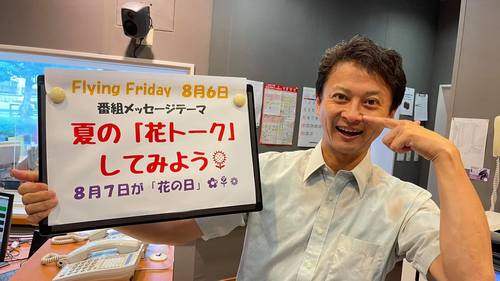 Flying Friday 8月6日
番組メッセージテーマ
夏の「花トーク」
してみよう
8月7日が「花の日」